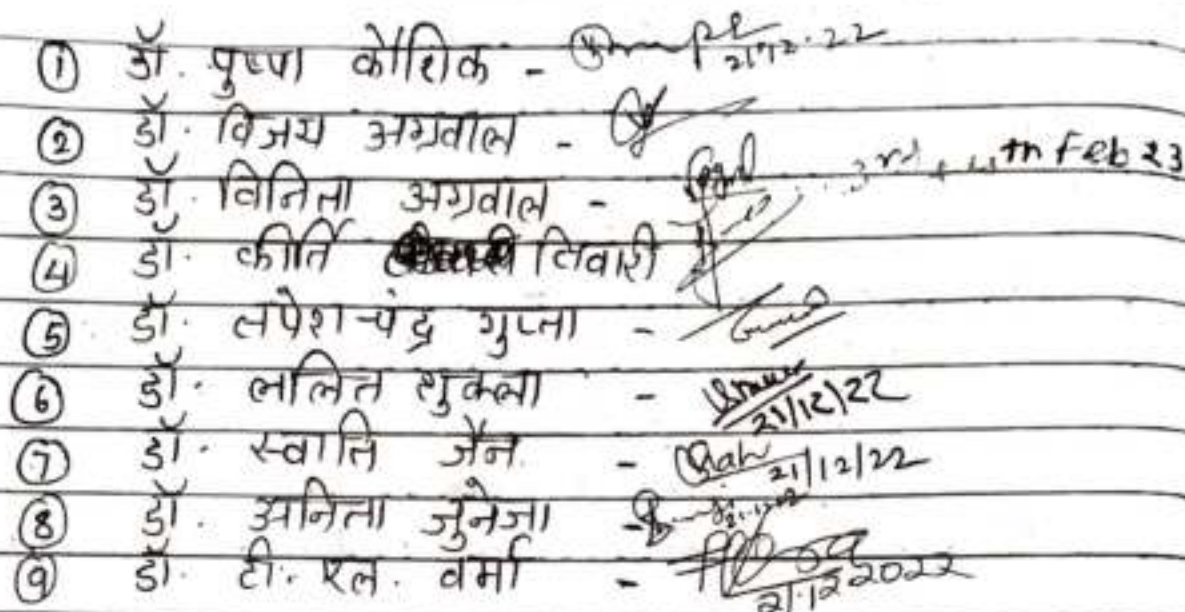 ① डॉ. पुष्पा कौशिक - 21.12.22
② डॉ. विजय अग्रवाल -
③ डॉ. विनिता अग्रवाल - 3rd 4th Feb 23
④ डॉ. कीर्ति तिवारी
⑤ डॉ. तपेश चंद्र गुप्ता -
⑥ डॉ. ललित शुक्ला - 21/12/22
⑦ डॉ. स्वाति जैन. - 21/12/22
⑧ डॉ. अनिता जुनेजा -
⑨ डॉ. टी. एल. वर्मा - 21.12.2022